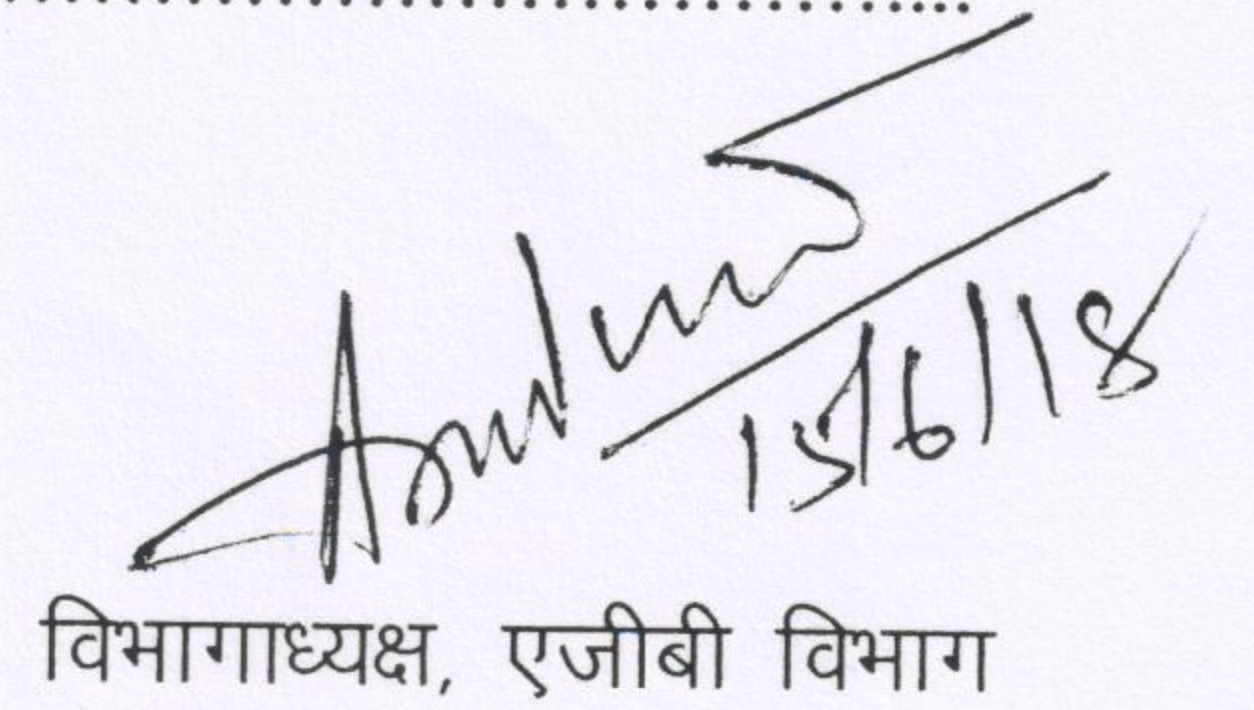 15/6/18
विभागाध्यक्ष, एजीबी विभाग